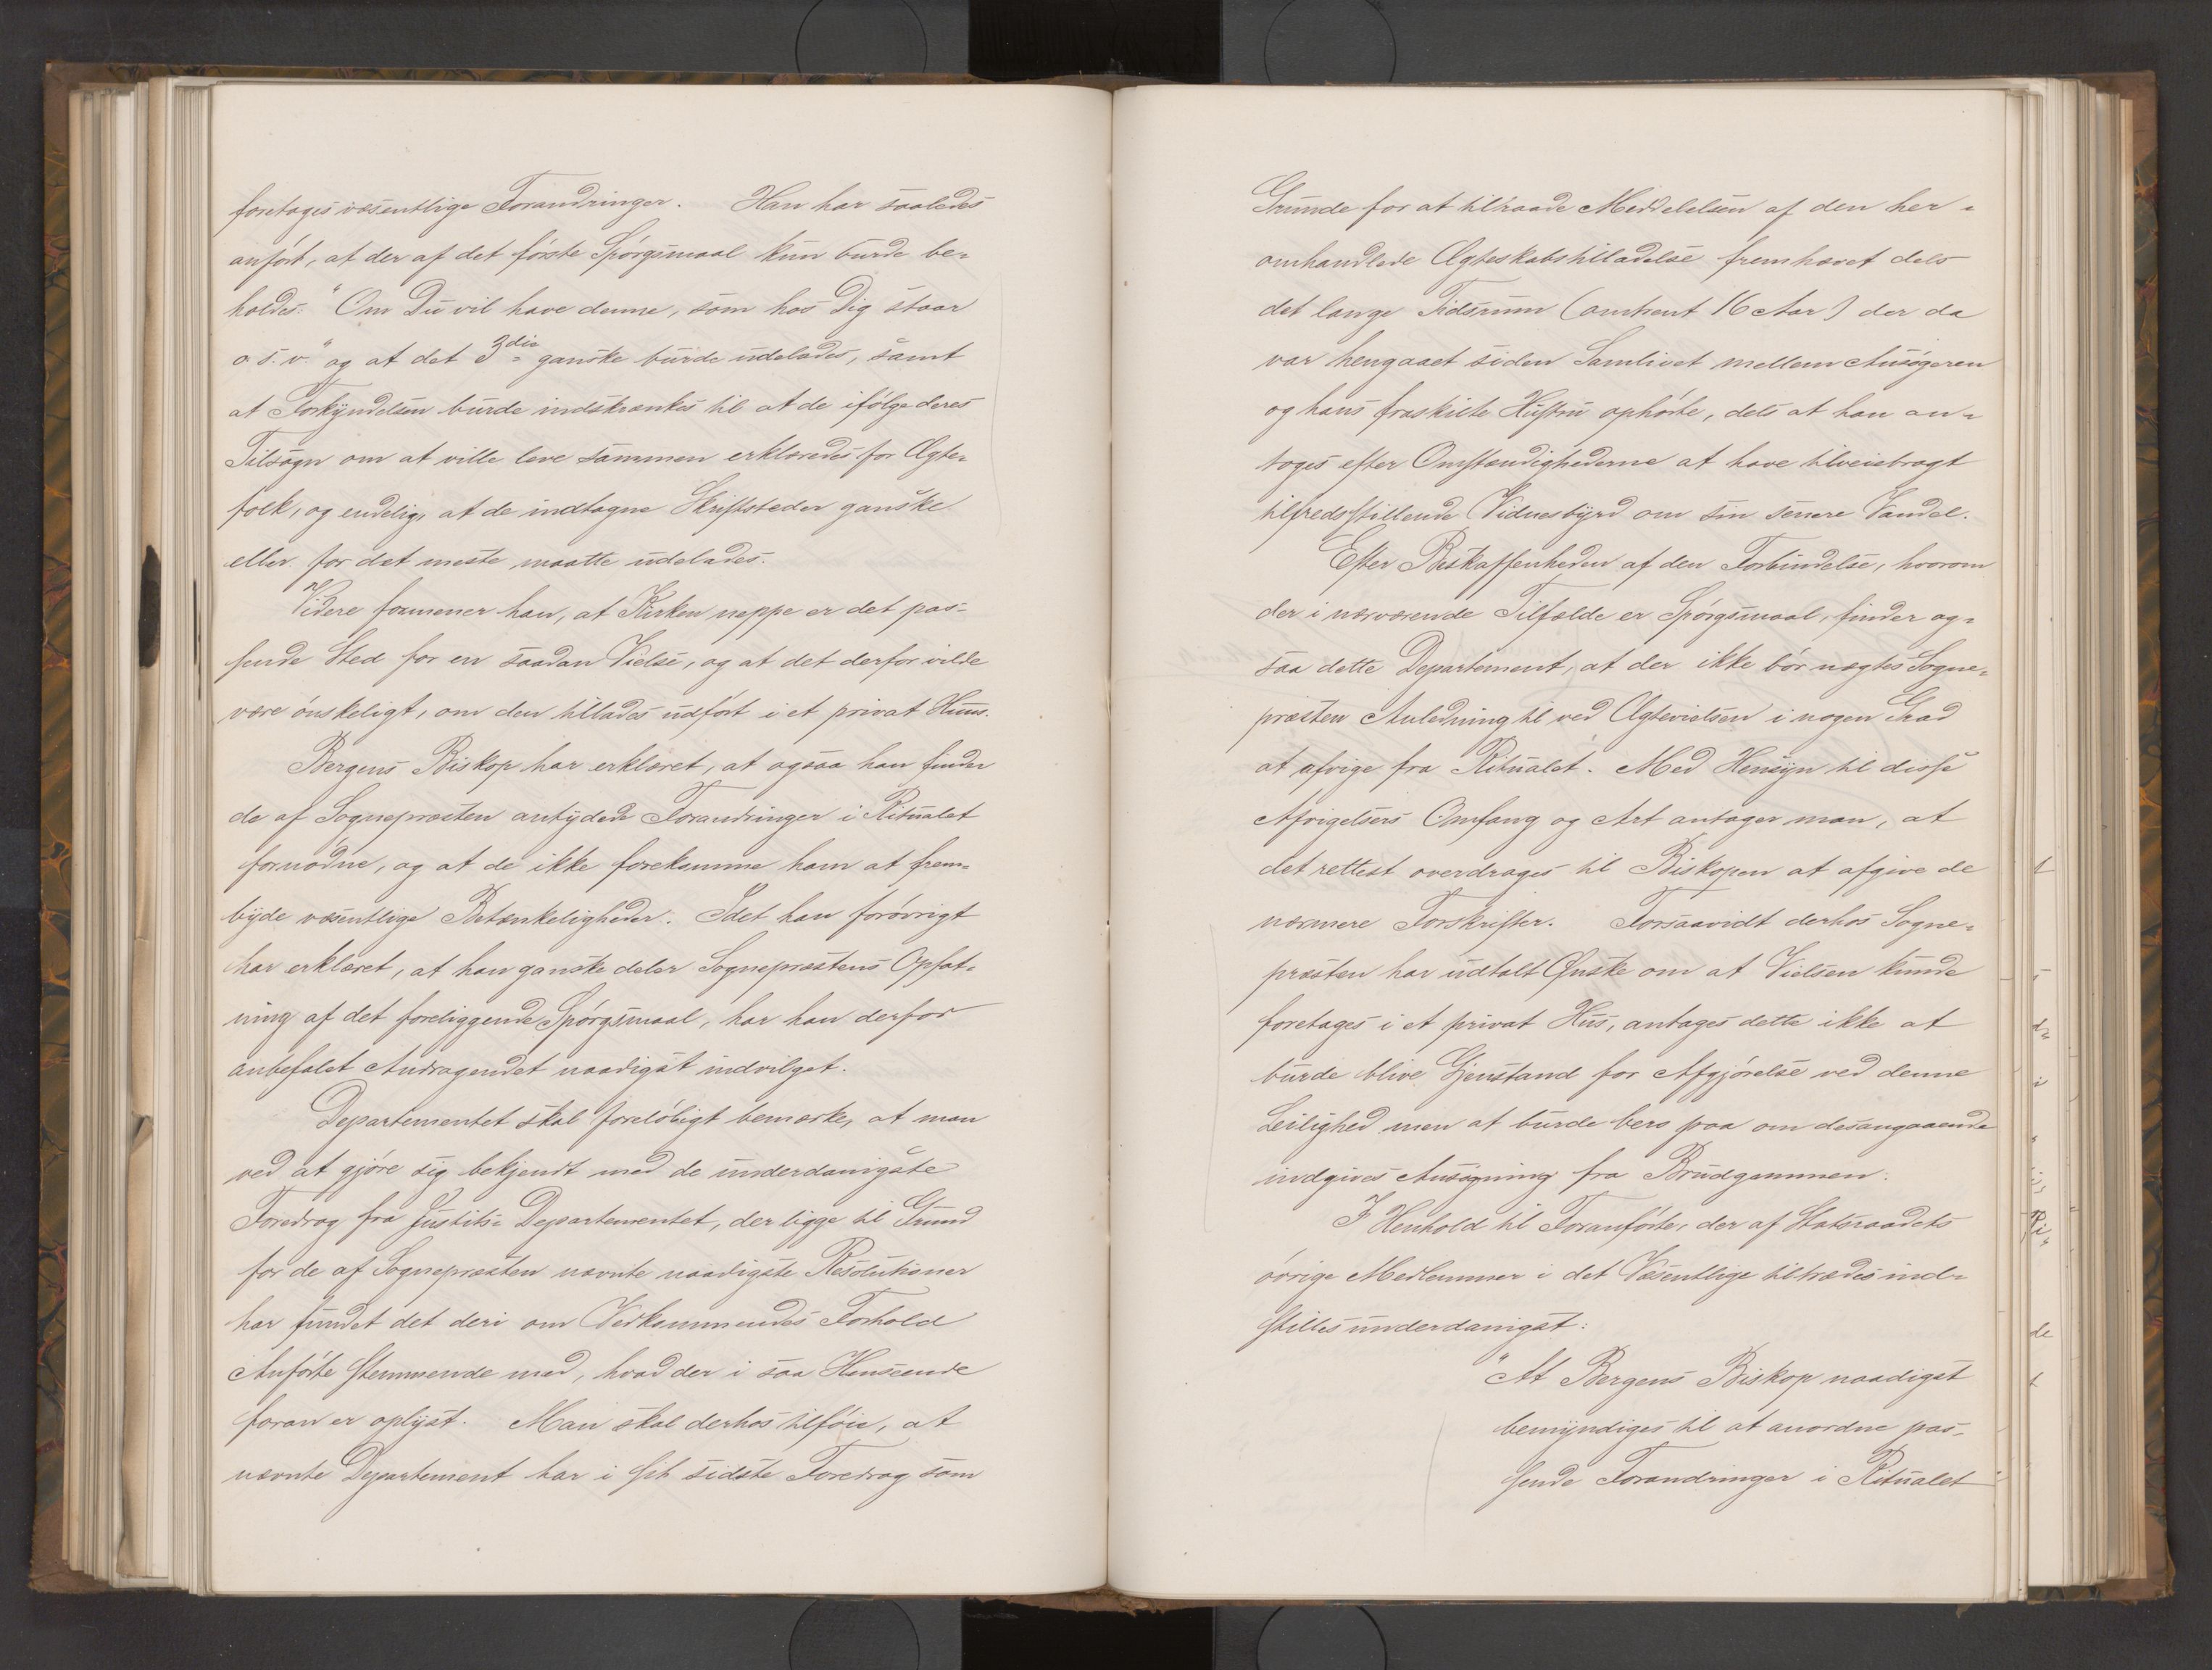 foretages væsentlige Forandringer. Han har saaledes
anført, at der af det første Spørgsmaal kun burde be-
holdes: "Om Du vil have denne, som hos Dig staar
o. s. v." og at det 3die ganske burde udelades, samt
at Forkyndelsen burde indskrænkes til at de ifølge deres
Tilsagn om at ville leve sammen erklæredes for Ægte-
folk, og endelig, at de indtagne Skriftsteder ganske
eller for det meste maatte udelades.
Videre formener han, at Kirken neppe er det pas-
sende Sted for en saadan Vielse, og at det derfor vilde
være ønskeligt, om den tillades udført i et privat Huus.
Bergens Biskop har erklæret, at ogsaa han finder
de af Sognepræsten antydede Forandringer i Ritualet
fornødne, og at de ikke forekomme ham at frem-
byde væsentlige Betænkeligheder. Idet han forøvrigt
har erklæret, at han ganske deler Sognepræstens Opfat-
ning af det foreliggende Spørgsmaal, har han derfor
anbefalet Andragendet naadigst indvilget.
Departementet skal foreløbigt bemærke, at man
ved at gjøre sig bekjendt med de underdanigste
Foredrag fra Justits-Departementet, der ligge til Grund
for de af Sognepræsten nævnte naadigste Resolutioner
har fundet det deri om Vedkommendes Forhold
Anførte stemmende med, hvad der i saa Henseende
foran er oplyst. Man skal derhos tilføie, at
nævnte Departement har i sit sidste Foredrag som
Grunde for at tilraade Meddelelsen af den her-
omhandlede Ægteskabstilladelse fremhævet dels
det lange Tidsrum (omtrent 16 Aar) der da
var hengaaet siden Samlivet mellem Ansøgeren
og hans fraskilte Hustru ophørte, dels at han an-
toges efter Omstændighederne at have tilveiebragt
tilfredsstillende Vidnesbyrd om sin senere Vandel.
Efter Beskaffenheden af den Forbindelse, hvorom
der i nærværende Tilfælde er Spørgsmaal, finder og-
saa dette Departement, at der ikke bør nægtes Sogne-
præsten Anledning til ved Ægtevielsen i nogen Grad
at afvige fra Ritualet. Med Hensyn til disse
Afvigelsers Omfang og Art antager man, at
det rettest overdrages til Biskopen at afgive de
nærmere Forskrifter. Forsaavidt derhos Sogne-
præsten har udtalt Ønske om at Vielsen kunde
foretages i et privat Hus, antages dette ikke at
burde blive Gjenstand for Afgjørelse ved denne
Leilighed men at burde bero paa om desangaaende
indgives Ansøgning fra Brudgommen.
I Henhold til Foranførte, der af Statsraadets
øvrige Medlemmer i det Væsentlige tiltrædes ind-
stilles underdanigst:
"At Bergens Biskop naadigst
bemyndiges til at anordne pas-
sende Forandringer i Ritualet